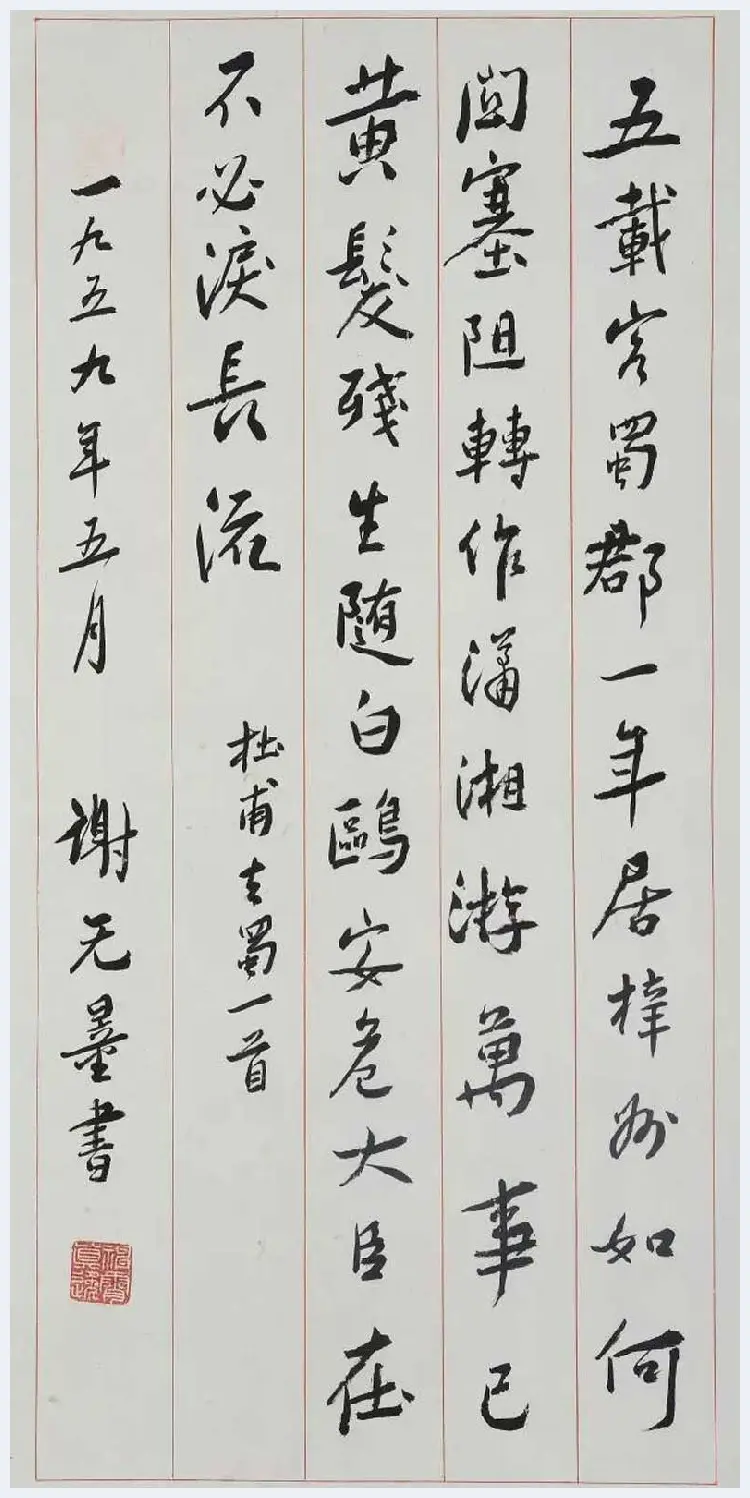 五載客蜀郡一年居梓州如何
關塞阻轉作瀟湘游萬事已
黄髮殘生随白鷗安危大臣在
不必淚長流 杜甫去蜀一首
一九五九年五月 謝无量書